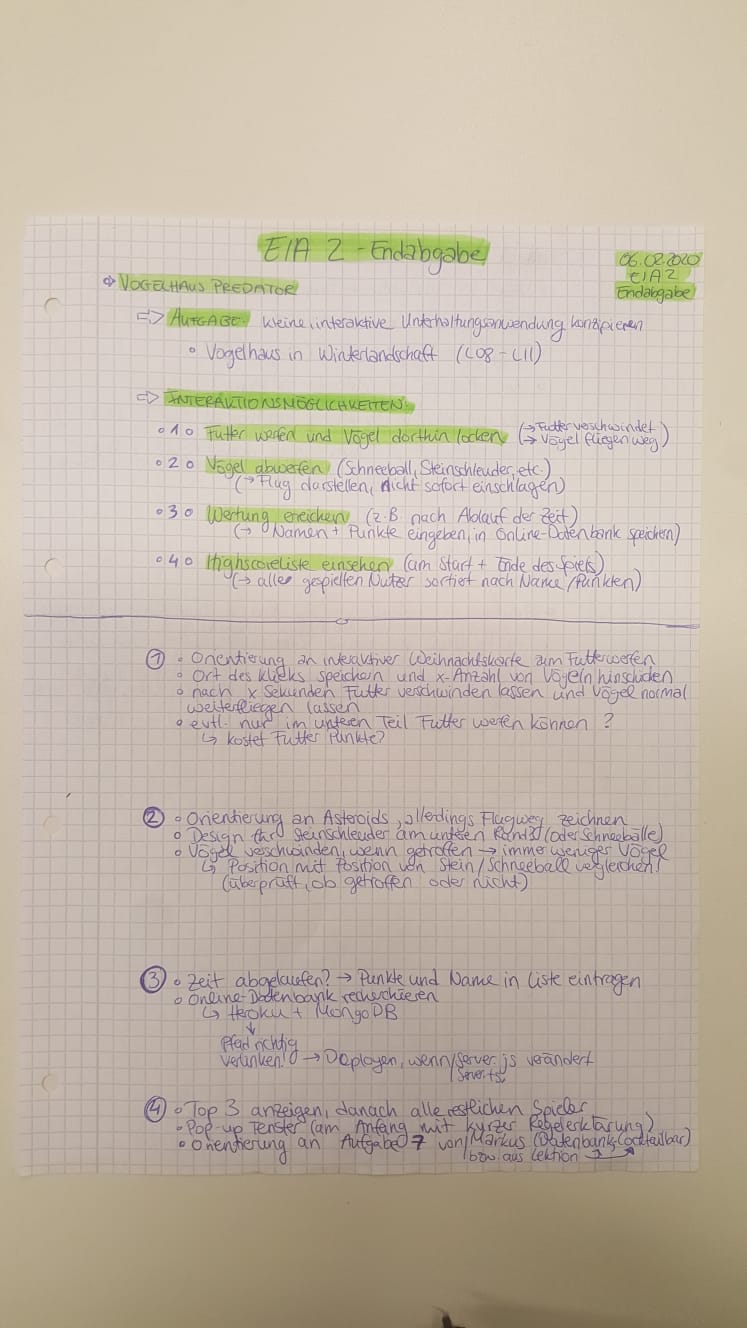 EIA 2 - Endabgabe
06.02.2020
EIA 2
Endabgabe
⇨ VOGELHAUS PREDATOR
=> AUFGABE: kleine, interaktive Unterhaltungsanwendung konzipieren
• Vogelhaus in Winterlandschaft (L08 - L11)
=> INTERAKTIONSMÖGLICHKEITEN:
° 1 ° Futter werfen und Vögel dorthin locken (→ Futter verschwindet
→ Vögel fliegen weg)
° 2 ° Vögel abwerfen (Schneeball, Steinschleuder, etc.)
(→ Flug darstellen, nicht sofort einschlagen)
° 3 ° Wertung erreichen (z.B nach Ablauf der Zeit)
(→ Namen + Punkte eingeben, in Online-Datenbank speichern)
° 4 ° Highscoreliste einsehen (am Start + Ende des Spiels)
(→ aller gespielten Nutzer sortiert nach Name / Punkten)
① ° Orientierung an interaktiver Weihnachtskarte zum Futterwerfen
° Ort des Klicks speichern und x-Anzahl von Vögeln hinschicken
° nach x Sekunden Futter verschwinden lassen und Vögel normal
weiterfliegen lassen
° evtl. nur im unteren Teil Futter werfen können ?
↳ kostet Futter Punkte?
② ° Orientierung an Asteroids, allerdings Flugweg zeichnen
° Design für Steinschleuder am unteren Rand (oder Schneebälle)
° Vögel verschwinden, wenn getroffen → immer weniger Vögel
↳ Position mit Position von Stein / Schneeball vergleichen!
(überprüft, ob getroffen oder nicht)
③ ° Zeit abgelaufen? → Punkte und Name in Liste eintragen
° Online-Datenbank recherchieren
↳ Heroku + MongoDB
↓
Pfad richtig
verlinken! → Deployen, wenn Server.js verändert
/Server.ts
④ ° Top 3 anzeigen, danach alle restlichen Spieler
° Pop-up Fenster (am Anfang mit kurzer Regelerklärung)
° Orientierung an Aufgabe 7 von Markus (Datenbank, Cocktailbar)
/bzw aus Lektion